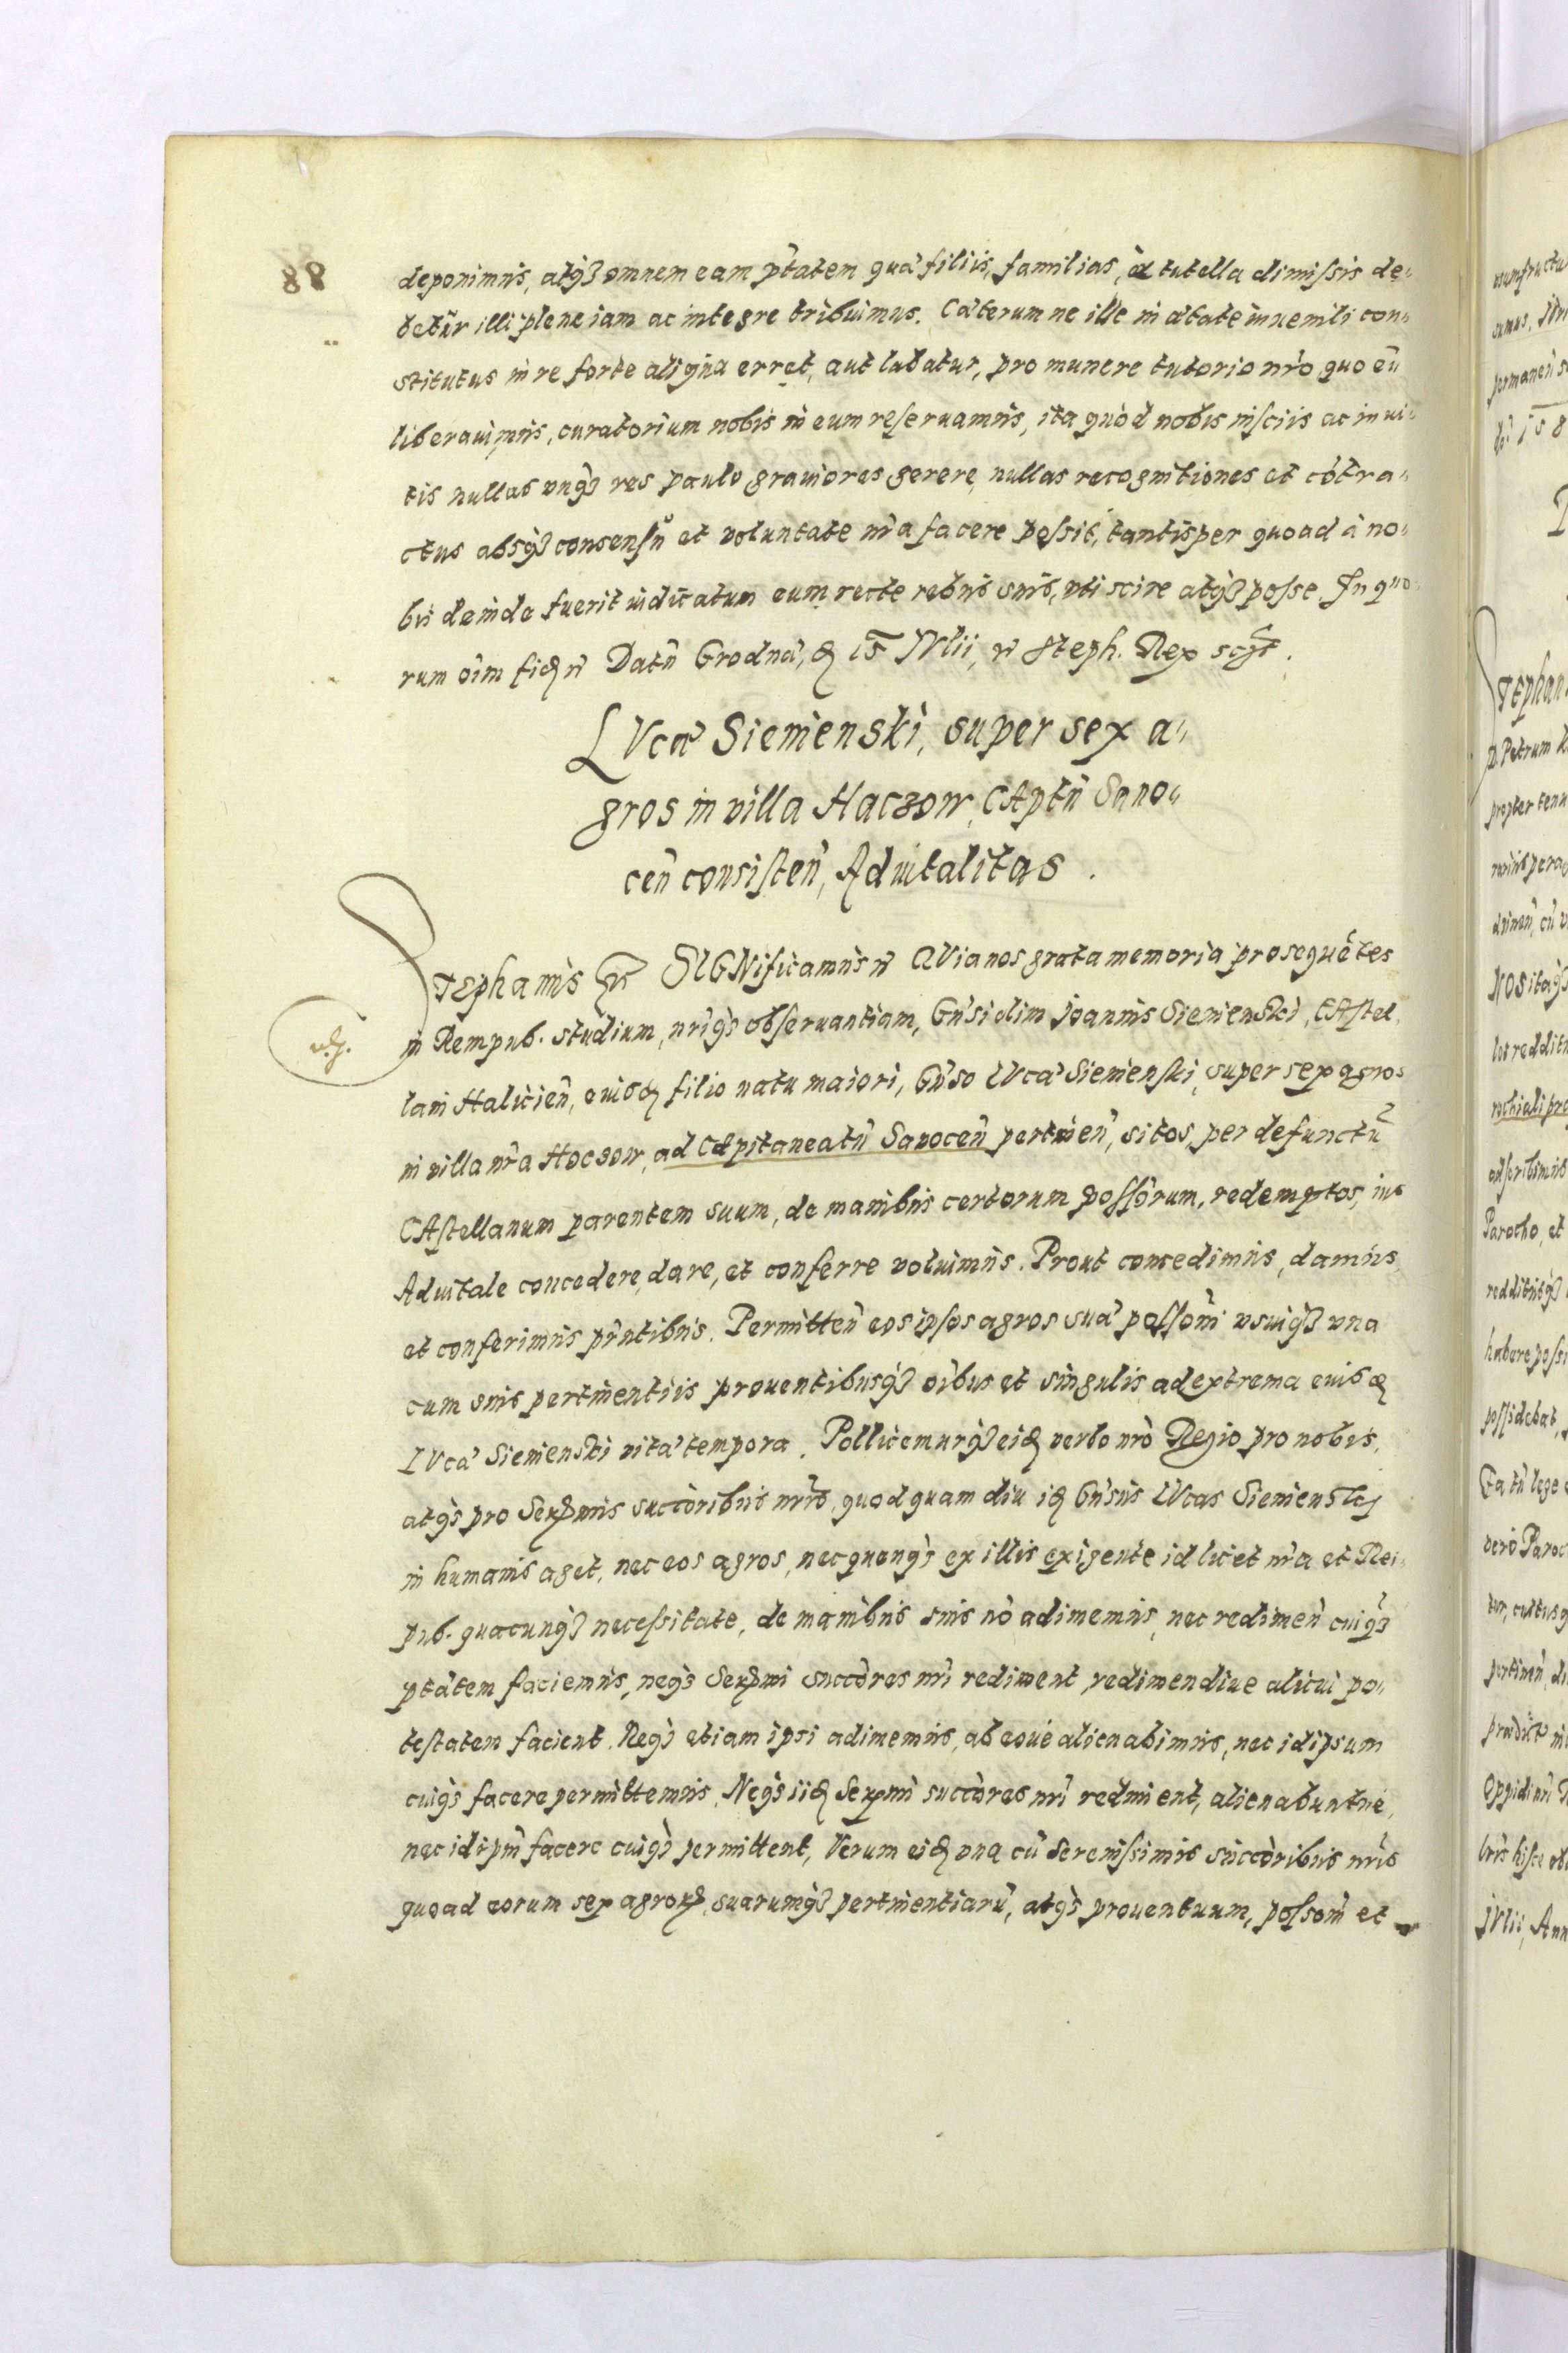 88
deponimus, atqȝ omnem eam ptãtem quæ filiis, familias, à tutella dimissis de„
betur illi plene iam ac integre tribuimus. Cæterum ne ille in ætate iuuenili con„
stitutus in re forte aliqua erret, aut labatur, pro munere tutorio nr̃o quo eũ
liberauimus, curatorium nobis in eum reseruamus, ita quòd nobis insciis ac inui„
tis nullas vnqȝ res paulo grauiores gerere, nullas recognitiones et cõtra„
ctus absqȝ consensu et voluntate nr̃a facere possit, tantisper quoad à no„
bis deinde fuerit iudicatum eum recte rebus suis, vti scire atqȝ posse. In quo„
rum oĩm fid
Datũ Grodnæ,
15 IVlii,
Steph. Rex
LVcæ Siemenski, super sex a„
gros in villa Haczow, CAptũ Sano„
ceñ consisteñ, Aduitalitas.
STephanus
SIGNificamus
QVia nos grata memoria prosequẽtes
in Rempub. studium, nr̃iqȝ obseruantiam, Gñsi olim Joannis Siemenski, CAstel„
lani Halicieñ, eiusdꝫ filio natu maiori, Gñso LVcæ Siemenski, super sex agros
in villa nr̃a Hoczow, ad CApitaneatũ Sanoceñ pertineñ, sitos, per defunctũ
CAstellanum parentem suum, de manibus certorum possõrum, redemptos, ius
Aduitale concedere, dare, et conferre voluimus. Prout concedimus, damus,
et conferimus pñtibus. Permitteñ eos ipsos agros suæ possoñi vsuiqȝ vna
cum suis pertinentiis prouentibusqȝ oĩbus et singulis, ad extrema eiusdꝫ
LVcæ Siemenski vitæ tempora. Pollicemurqȝ eidꝫ verbo nr̃o Regio pro nobis,
atqȝ pro Serꝫmis succõribus nr̃is, quod quam diu idꝫ Gñsus LVcas Siemensky
in humanis aget, nec eos agros, nec quenqȝ ex illis exigente id licet nr̃a et Rei„
pub. quacunqȝ necessitate, de manibus suis nõ adimemus, nec redimeñ cuiqȝ
ptãtem faciemus, neqȝ Serꝫmi succõres nr̃i rediment, redimendiue alicui po„
testatem facient. Neqȝ etiam ipsi adimemus, ab eoue alienabimus, nec idipsum
cuiqȝ facere permittemus. Neqȝ iidꝫ Serꝫmi succõres nr̃i rediment, alienabuntue,
nec idipm̃ facere cuiqȝ permittent, Verum eidꝫ vna cũ Serenissimis succõribus nr̃is
quoad eorum sex agrorꝫ, suarumqȝ pertinentiarũ, atqȝ prouentuum, possoñi et